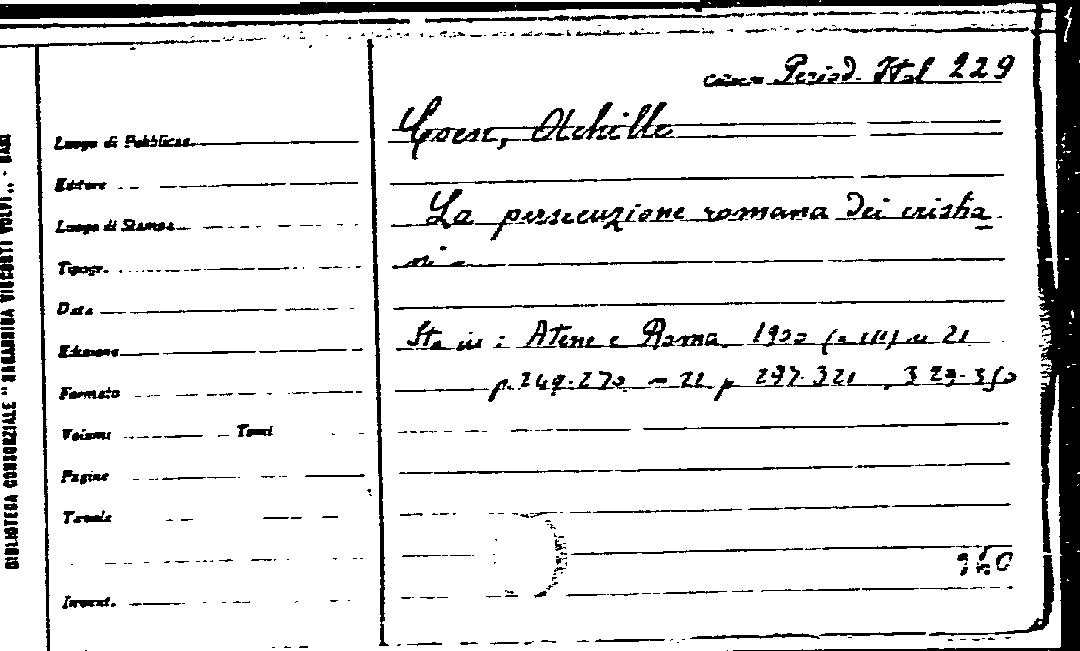 Period. Ital 229
Coen, Achille
Luogo di Pubblicaz.
Editore
La persecuzione romana dei cristia
Luogo di Stampa
ni -
Tipogr.
Data
Sta in : Atene e Roma 1900 (a III) n 21
Edizione
p. 249-270 - 22, p 297-321 , 329-350
Formato
Volumi Tomi
Pagine
Tavole
Invent.
BIBLIOTECA CONSORZIALE "SAGARRIGA VISCONTI VOLPI,, - BARI